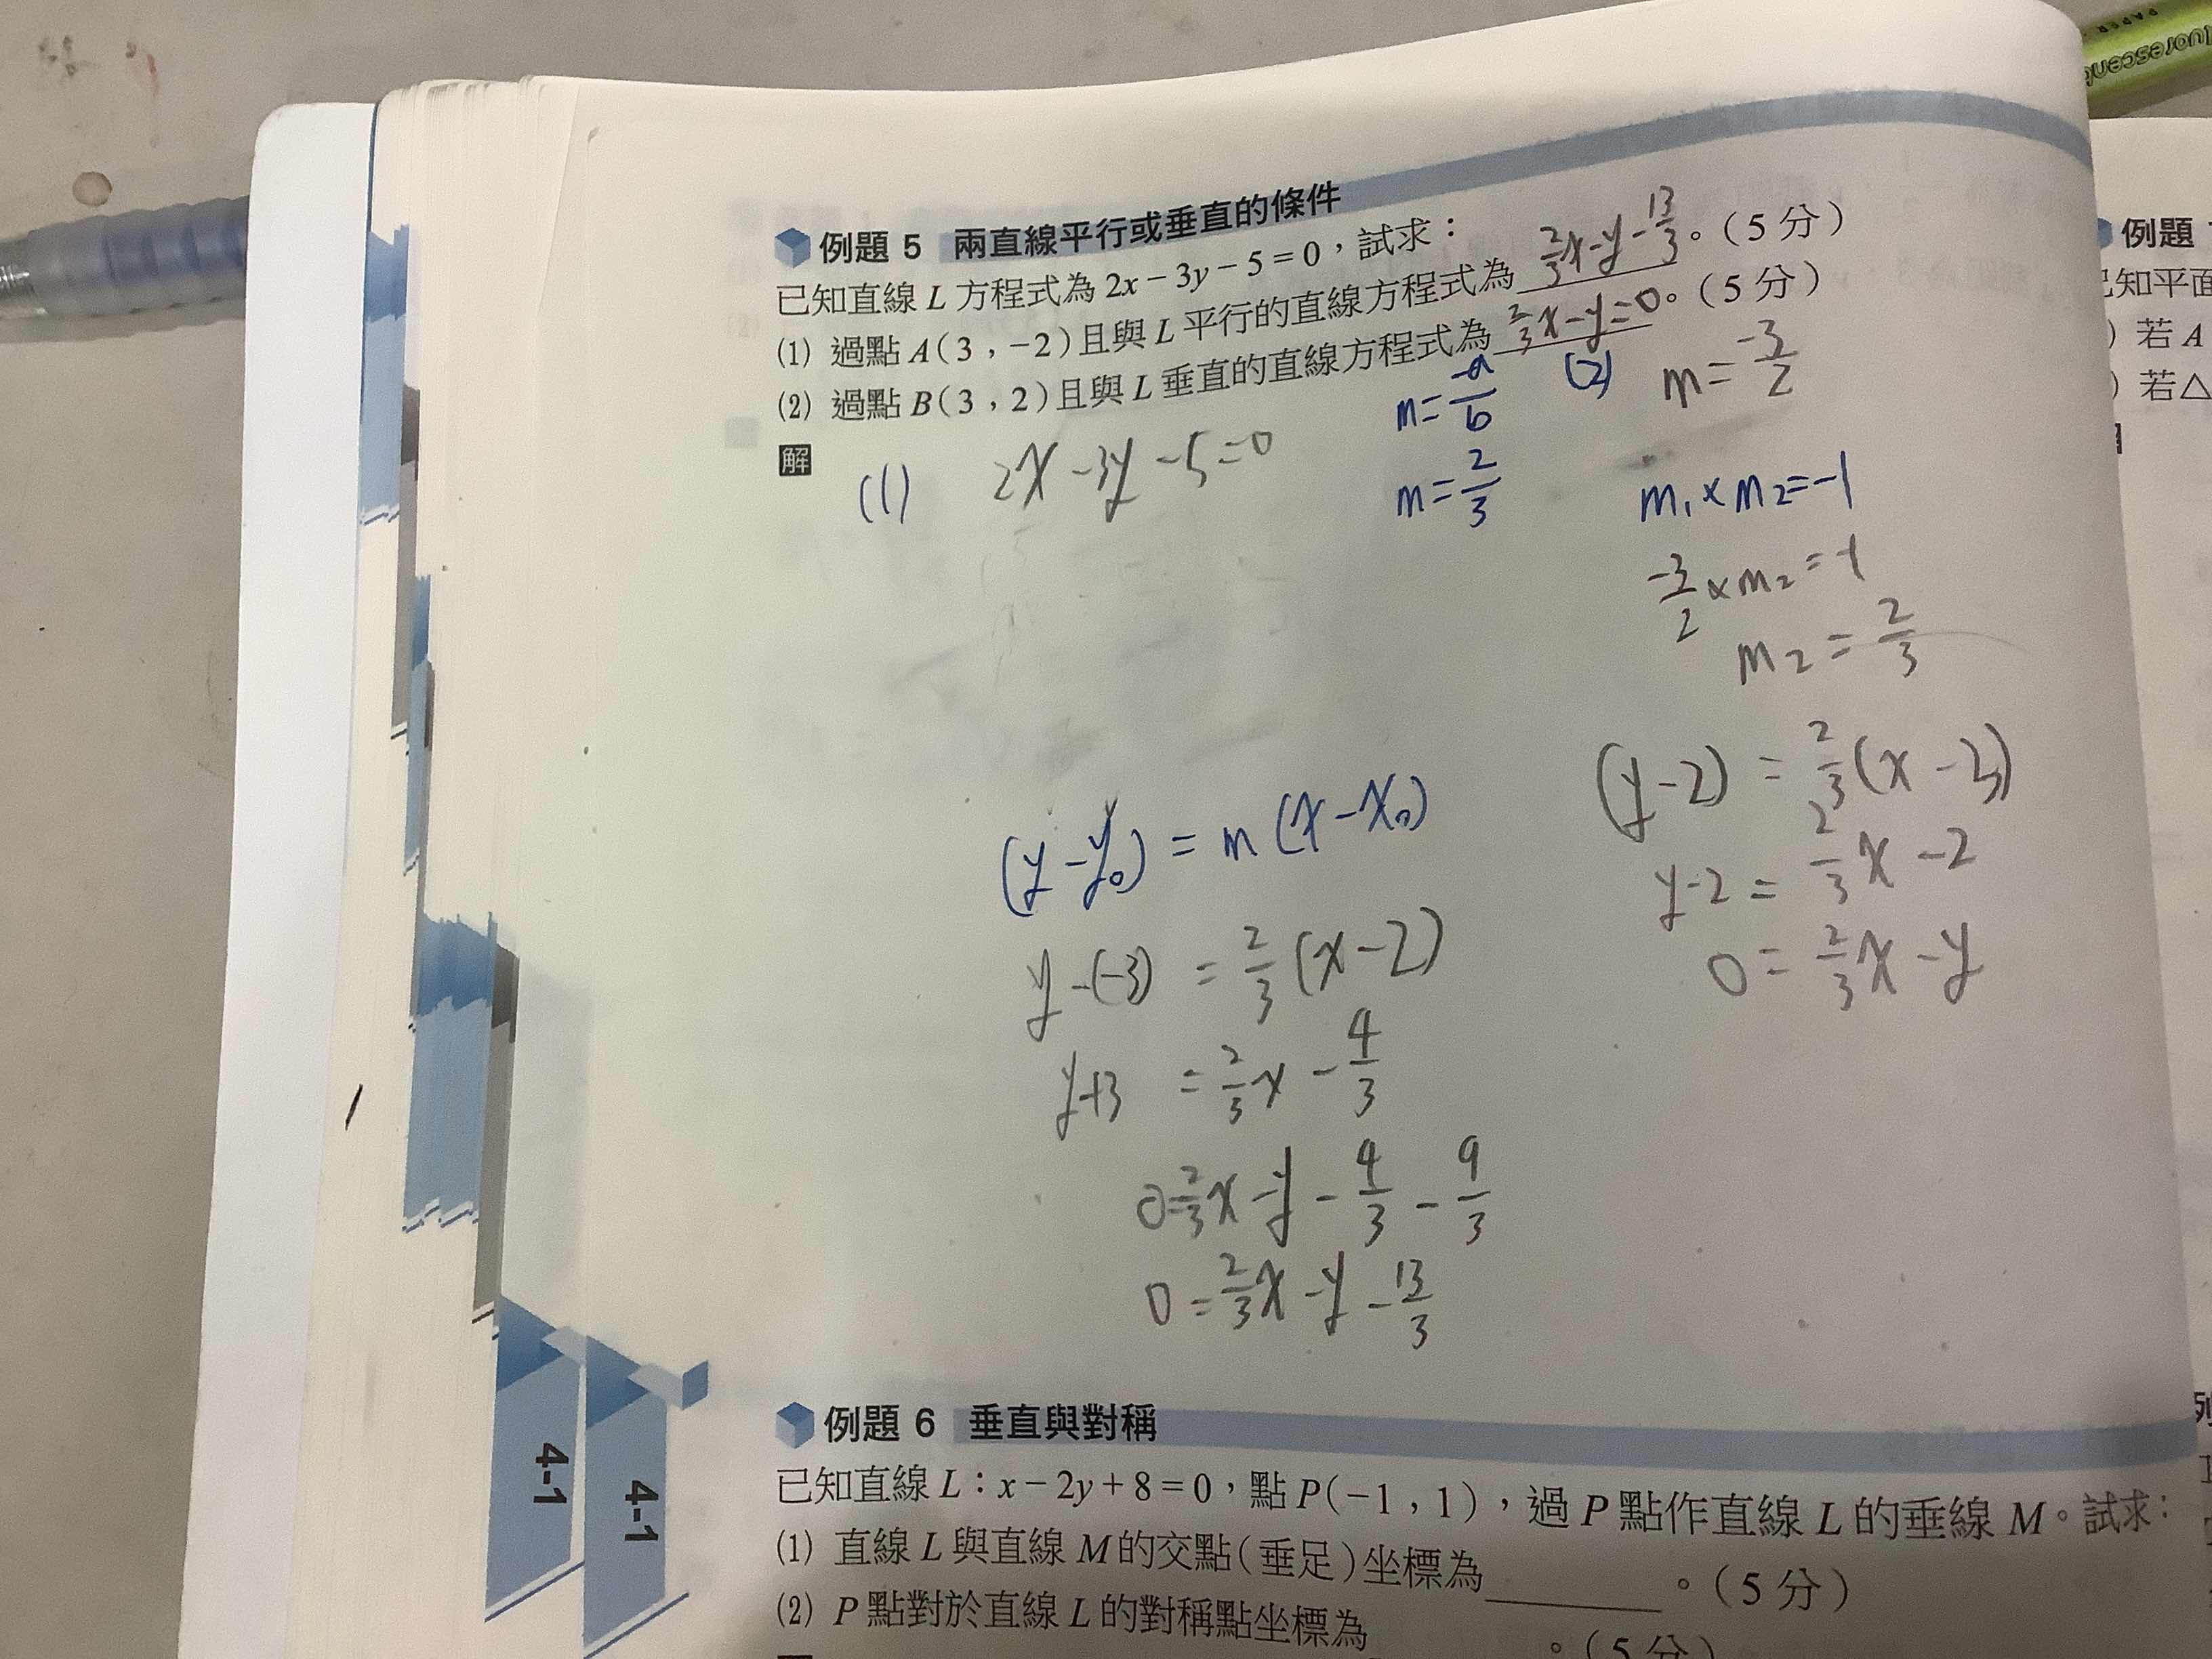 PAPER
fluorescen
例題 5 兩直線平行或垂直的條件
已知直線 L 方程式為 2x－3y－5＝0，試求：
(1) 過點 A(3，－2)且與 L 平行的直線方程式為 2/3x-y-13/3。(5分)
(2) 過點 B(3，2)且與 L 垂直的直線方程式為 2/3x-y=0。(5分)
解
(1) 2x-3y-5=0
m=-a/b
m=2/3
(y-y0)=m(x-x0)
y-(-3)=2/3(x-2)
y+3=2/3x-4/3
0=2/3x-y-4/3-9/3
0=2/3x-y-13/3
(2) m=-3/2
m1×m2=-1
-3/2×m2=-1
m2=2/3
(y-2)=2/3(x-3)
y-2=2/3x-2
0=2/3x-y
例題 6 垂直與對稱
已知直線 L：x－2y＋8＝0，點 P(－1，1)，過 P 點作直線 L 的垂線 M。試求：
(1) 直線 L 與直線 M 的交點(垂足)坐標為______。(5分)
(2) P 點對於直線 L 的對稱點坐標為______。(5分)
4-1
4-1
例題
已知平面
若 A
若△